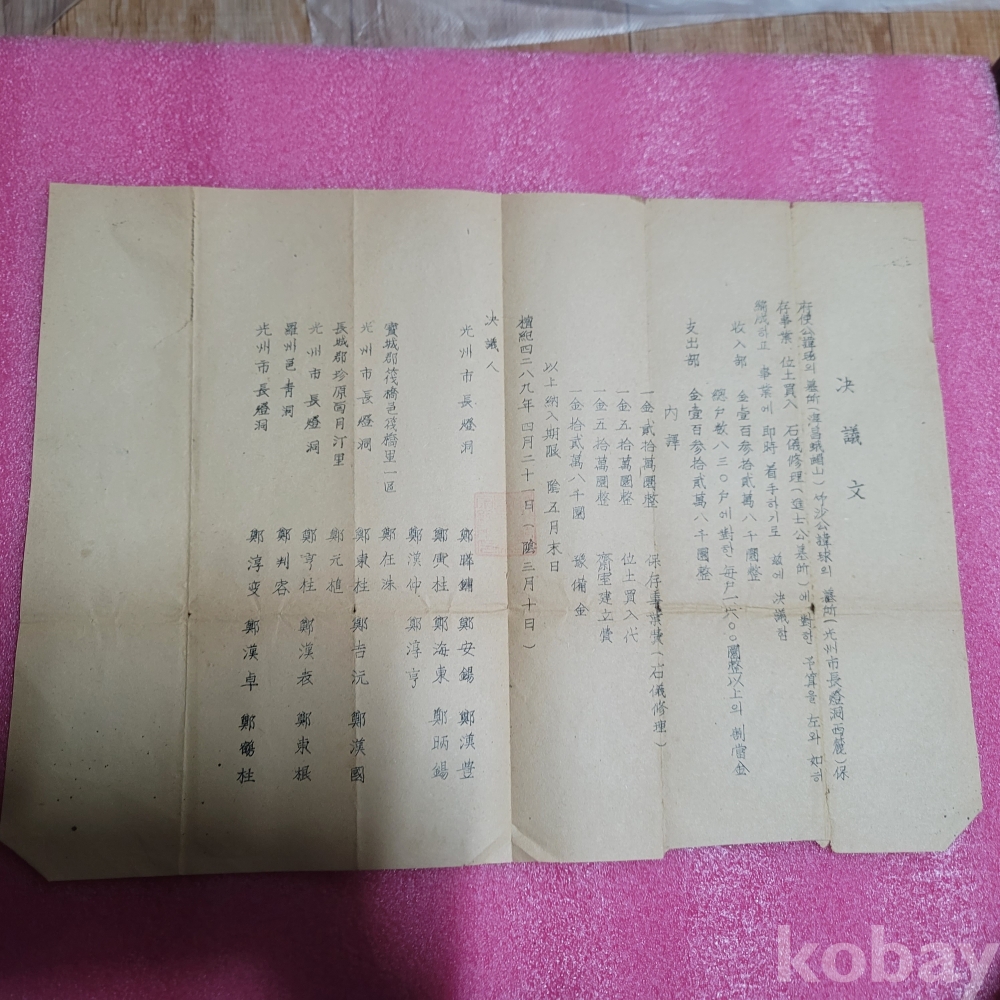 决議文
府使公諱瑤의 墓所(淳昌蛾眉山) 竹沙公諱球의 墓所(光州市長燈洞西麓)保
存事業 位土買入 石儀修理(進士公墓所)에 對한 予算을 左와 如히
編成하고 事業에 即時 着手하기로 玆에 決議함
收入部 金壹百参拾貳萬八千圜整
總戶數八三〇戶에 對한 每戶一六〇〇圜整以上의 割當金
支出部 金壹百参拾貳萬八千圜整
內譯
一金貳拾萬圜整 保存事業費(石儀修理)
一金五拾萬圜整 位土買入代
一金五拾萬圜整 齋室建立費
一金拾貳萬八千圜 豫備金
以上納入期限 陰五月末日
檀紀四二八九年四月二十一日(陰三月十日)
决議人
光州市長燈洞 鄭曄鏞 鄭安錫 鄭漢豊
鄭寅柱 鄭海東 鄭昞錫
鄭漢仲 鄭淳亨
寶城郡筏橋邑筏橋里一區 鄭在洙
光州市長燈洞 鄭東柱 鄭吉沅 鄭漢國
長城郡珍原面月汀里 鄭元植
光州市長燈洞 鄭亨柱 鄭漢衣 鄭東根
羅州邑青洞 鄭判容
光州市長燈洞 鄭淳变 鄭漢卓 鄭鶴柱
kobay